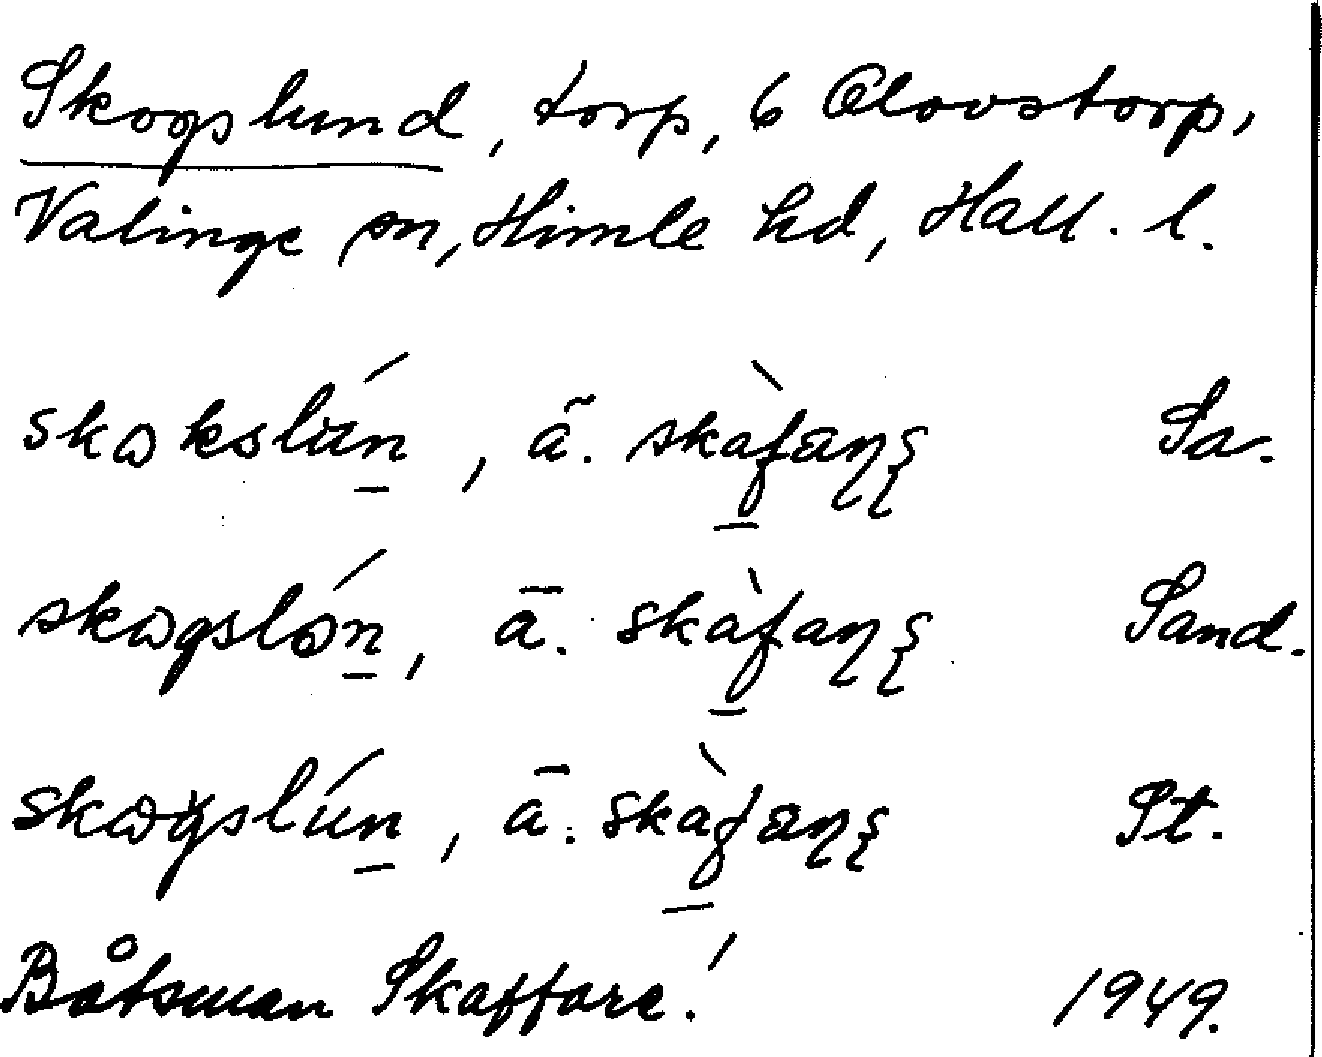 Skogslund, torp, 6 Olovstorp,
Valinge sn, Himle hd, Hall. l.
skɷkslún̲, ä̃. skàf̲aŋę Sa.
skɷgslón̲, ā. skàf̲aŋę Sand.
skɷgslún̲, ā. skàf̲aŋę St.
Båtsman Skaffare! 1949.